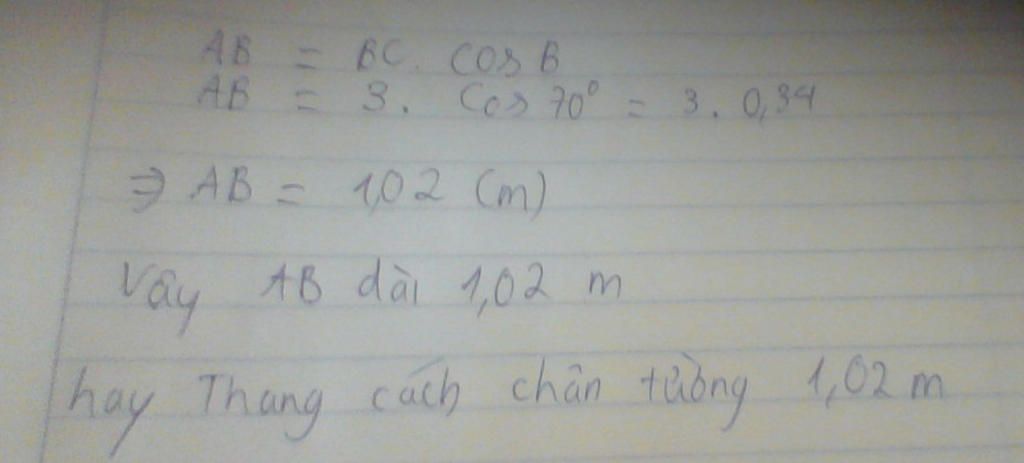 AB = BC. cos B
AB = 3. Cos 70° = 3. 0,34
⇒ AB = 1,02 (m)
Vây AB dài 1,02 m
hay Thang cách chân tường 1,02 m